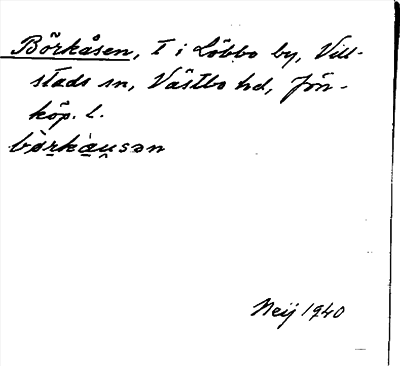 Börkåsen, T i Löbbo by, Vill-
stads sn, Västbo hd, Jön-
köp. l.
bòrkàu̯sən
Neij 1940